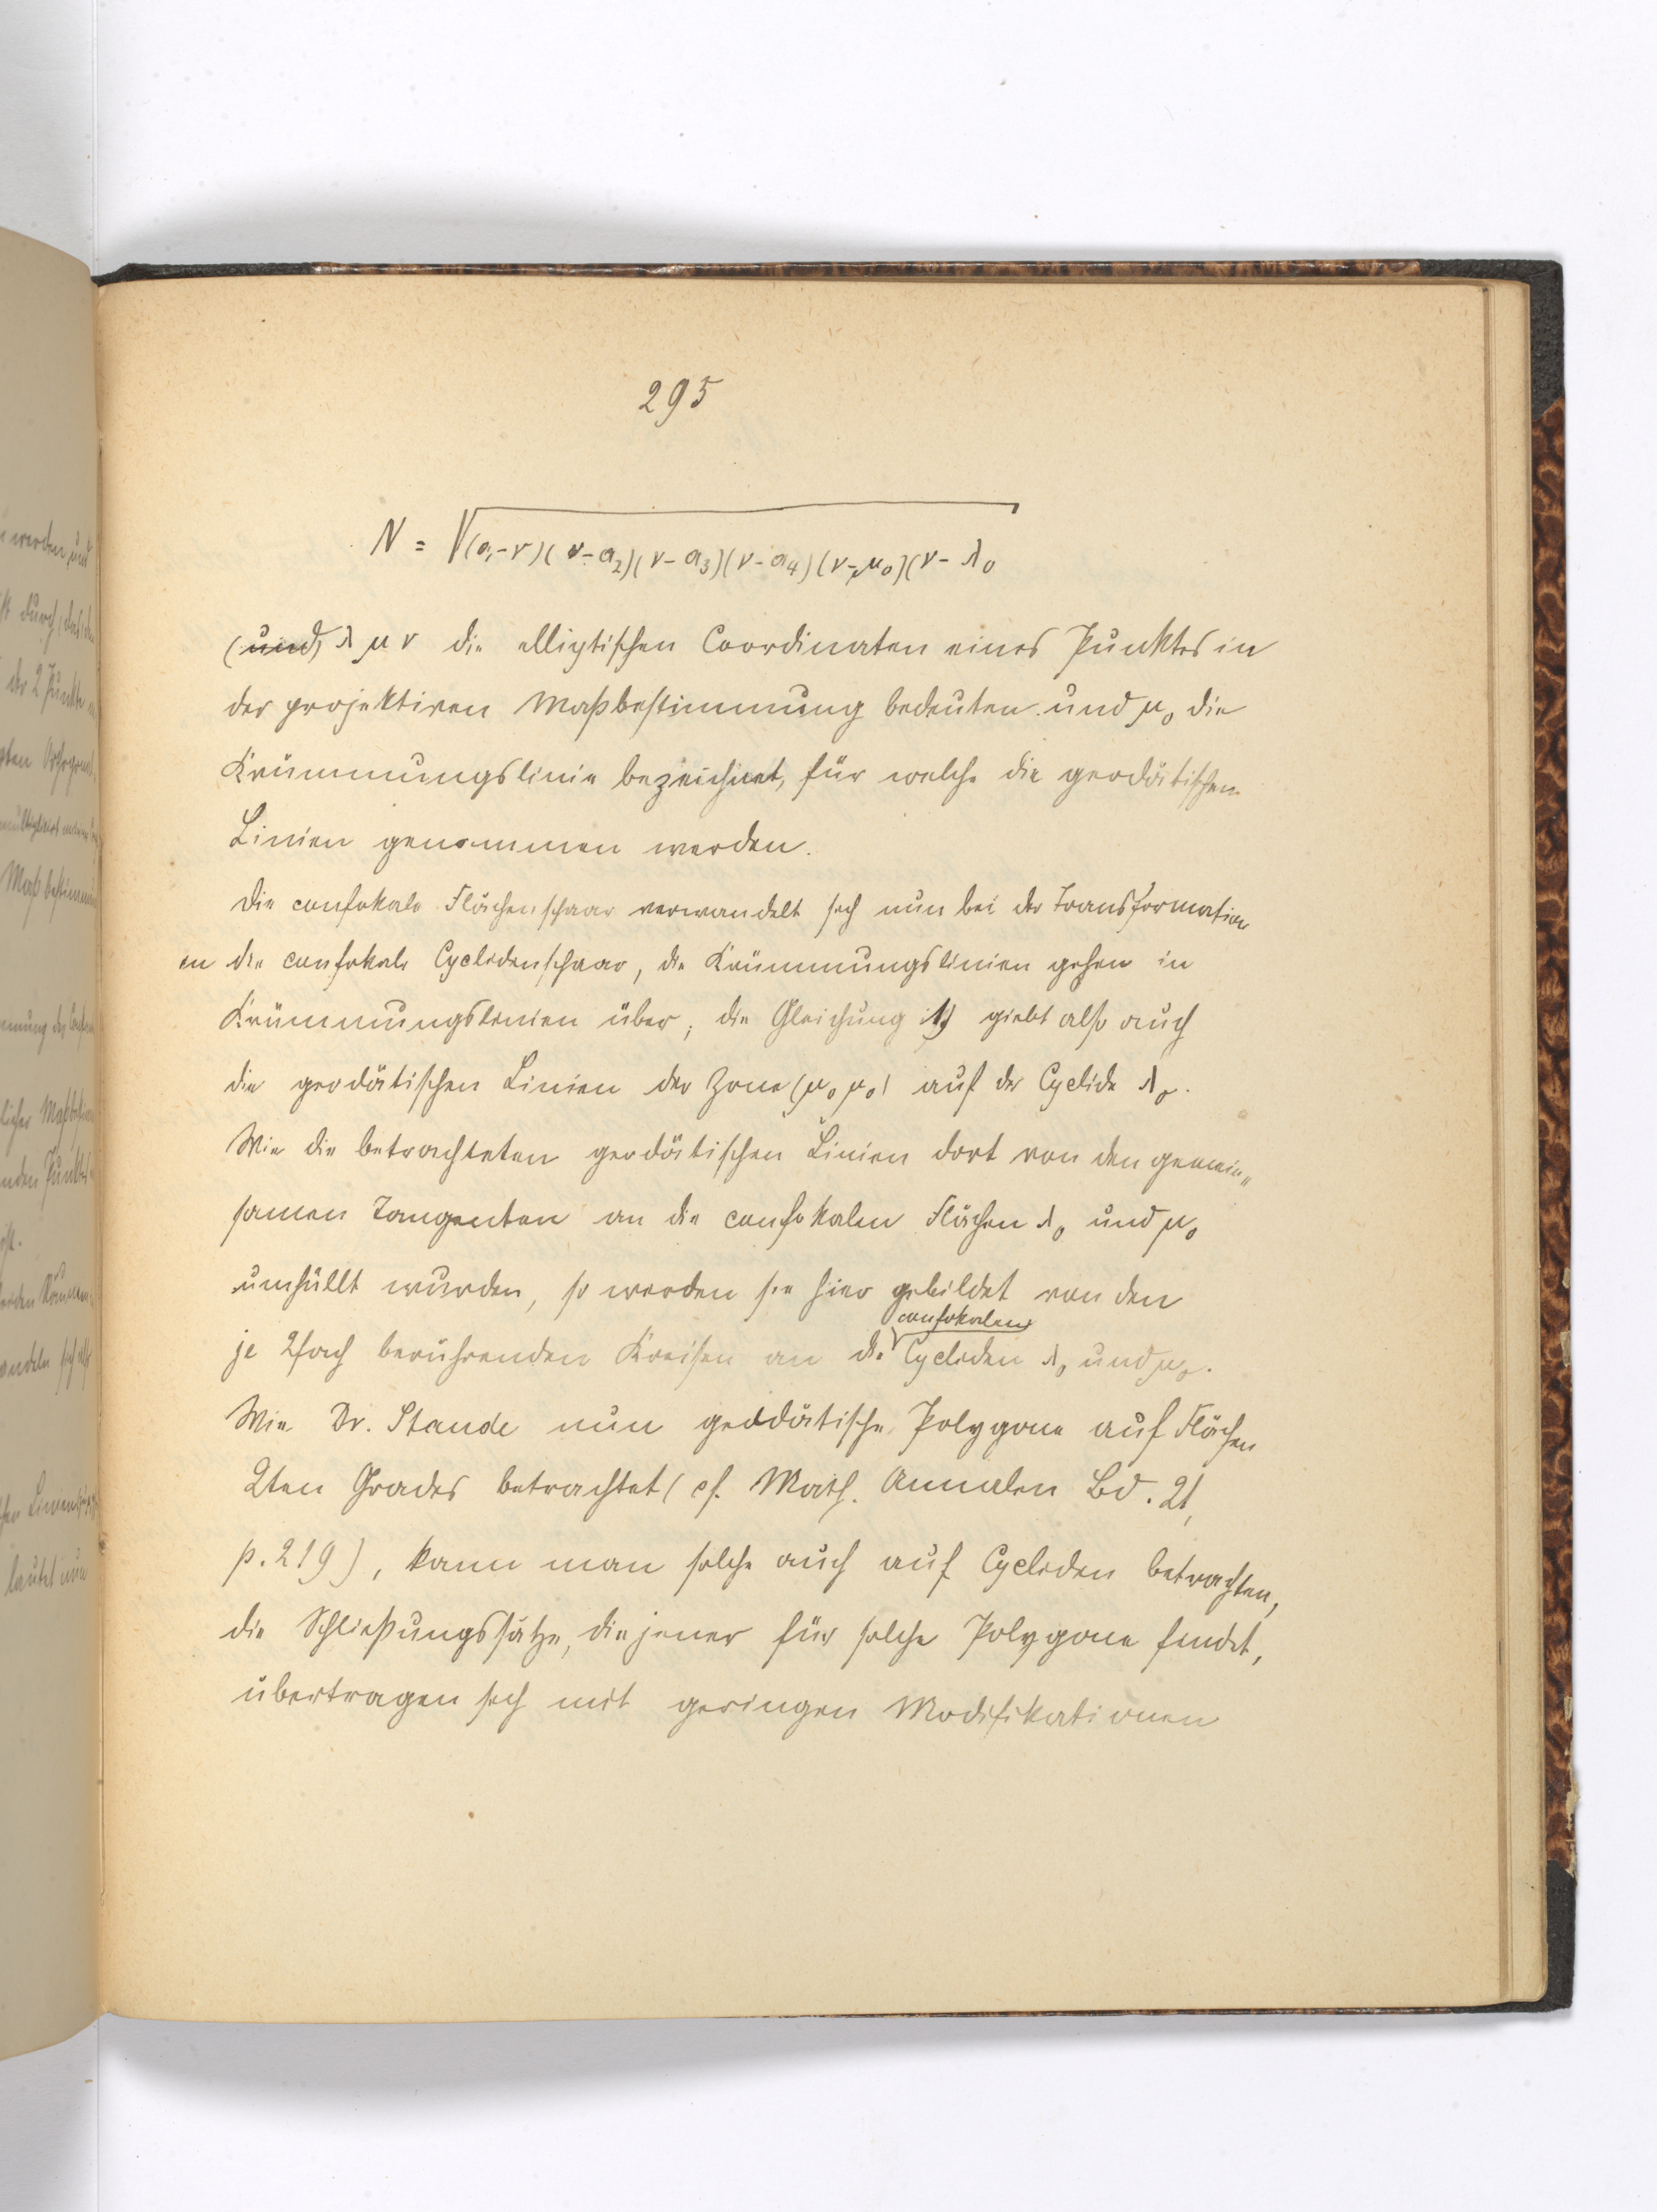 295
N = √(a₁-ν)(ν-a₂)(ν-a₃)(ν-a₄)(ν-μ₀)(ν-λ₀
(und) λ μ ν die elliptischen Coordinaten eines Punktes in
der projektiven Maßbestimmung bedeuten und μ₀ die
Krümmungslinie bezeichnet, für welche die geodätischen
Linien genommen werden.
Die confokale Flächenschaar verwandelt sich nun bei der Transformation
in die confokale Cyclidenschaar, die Krümmungslinien gehen in
Krümmungslinien über; die Gleichung 1) giebt also auch
die geodätischen Linien der Zone (μ₀ μ₀) auf der Cyclide λ₀.
Wie die betrachteten geodätischen Linien dort von den gemein„
samen Tangenten an die confokalen Flächen λ₀ und μ₀
umhüllt wurden, so werden sie hier gebildet von den
confokalen
je 2fach berührenden Kreisen an die Cycliden λ₀ und μ₀.
Wie Dr. Staude nun geodätische Polygone auf Flächen
2ten Grades betrachtet (cf. Math. Annalen Bd. 21,
p. 219), kann man solche auch auf Cycliden betrachten,
die Schließungssätze, die jener für solche Polygone findet,
übertragen sich mit geringen Modifikationen